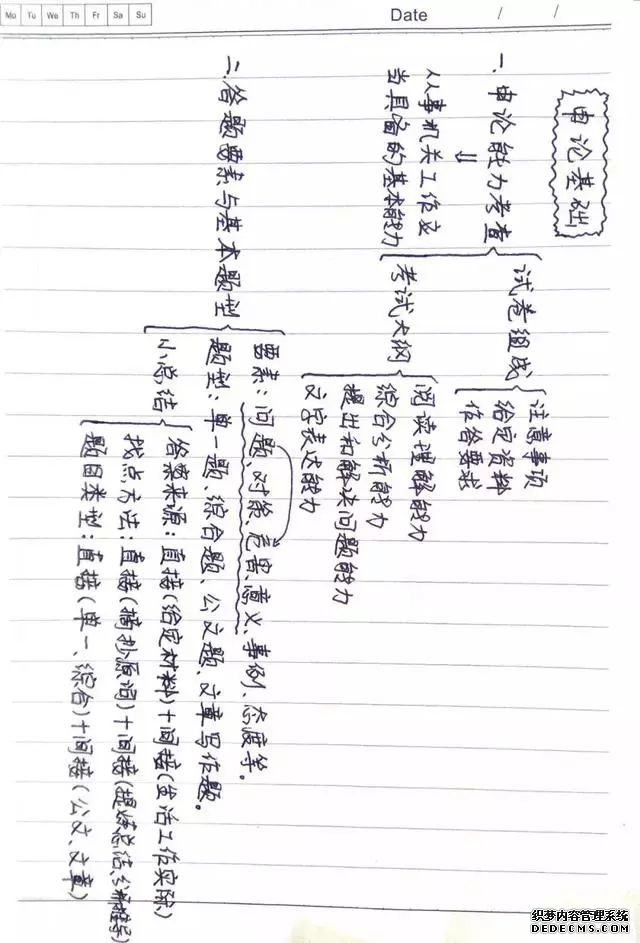 Mo Tu We Th Fr Sa Su
Date / /
申论基础
一、申论能力考查
从事机关工作应
当具备的基本能力
试卷组成
注意事项
给定资料
作答要求
考试大纲
阅读理解能力
综合分析能力
提出和解决问题能力
文字表达能力
二、答题要素与基本题型
要素:问题、对策、危害、意义、事例、态度等。
题型:单一题、综合题、公文题、文章写作题。
小总结
答案来源:直接(给定材料)+间接(生活工作实际)
找点方法:直接(摘抄原词)+间接(提炼总结、分析推导)
题目类型:直接(单一、综合)+间接(公文、文章)
织梦内容管理系统
DEDECMS.COM